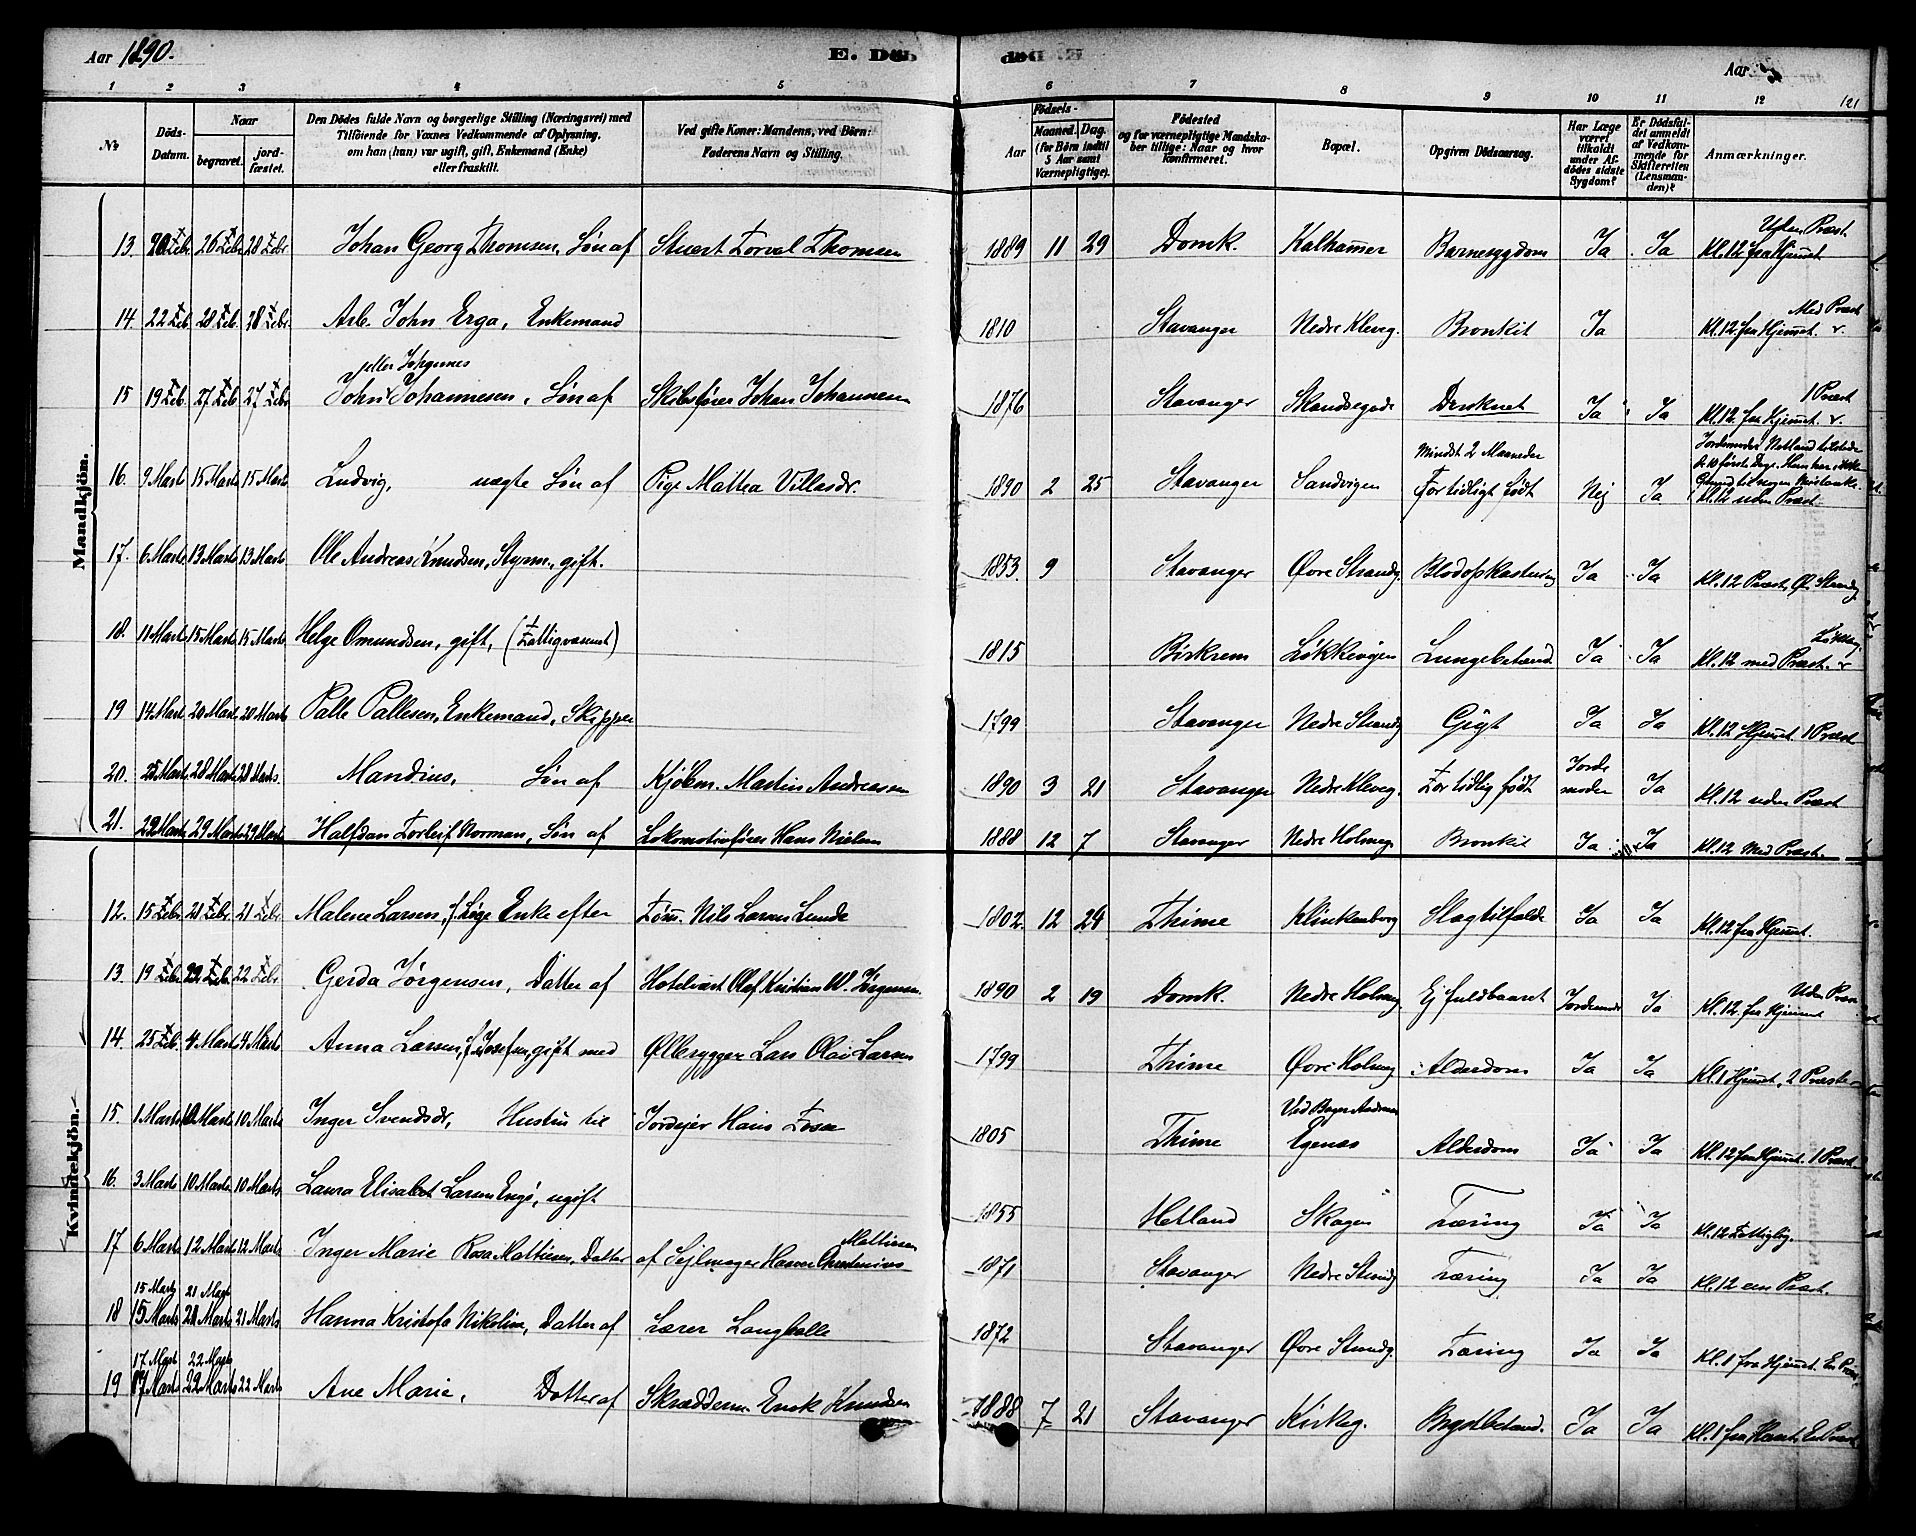 Aar 1890.
E. Død
Aar
121
1 2 3 4 5 6 7 8 9 10 11 12
№
Döds-Datum.
Naar
begravet.
jordfæstet.
Den Dödes fulde Navn og borgerlige Stilling (Næringsvei) med
Tilföiende for Voxnes Vedkommende af Oplysning,
om han (hun) var ugift, gift, Enkemand (Enke)
eller fraskilt.
Ved gifte Koner: Mandens, ved Börn:
Faderens Navn og Stilling.
Födsels-
Aar
Maaned.
Dag.
(for Börn indtil
5 Aar samt
Værnepligtige).
Födested
og for værnepligtige Mandskaber tillige: Naar og hvor
Konfirmeret.
Bopæl.
Opgiven Dödsaarsag.
Har Læge været tilkaldt under Afdödes sidste Sygdom?
Er Dödsfaldet anmeldt af Vedkommende for Skifteretten (Lensmanden)?
Anmærkninger.
Mandkjön.
13. 20 Febr. 26 Febr. 28 Febr. Johan Georg Thomsen, Søn af Stuert Torval Thomsen 1889 11 29 Domk. Kalhammer Barnesygdom Ja Ja Kl. 12 fra Hjemmet Uden Præst.
14. 22 Feb. 28 Feb. 28 Febr. Arb. John Erga, Enkemand 1810 Stavanger Nedre Kleveg. Bronkit Ja Kl. 12 fra Hjemmet. Med Præst
15 19 Feb. 27 Feb 27 Febr John Johannesen, Søn af Skibsfører Johan Johannesen 1876 Stavanger Skandsegade Druknet Ja Ja Kl. 12 fra Hjemmet. 1 Præst
16. 9 Marts 15 Marts 15 Marts Ludvig, uægte Søn af Pige Mathea Villasdr. 1890 2 25 Stavanger Sandvigen Mindst 2 Maaneder For tidligt født Nej Ja Kl. 12 uden Præst
17. 6 Marts 13 Marts 13 Marts Ole Andreas Knudsen, Styrm., gift. 1853 9 Stavanger Øvre Strandg. Blodopkastning Ja Ja Kl. 12 Præst, Ø. Strandg.
18. 11 Marts 15 Marts 15 Marts Helge Omundsen, gift, (Fattigvæsenet) 1815 Birkrem Løkkevigen Lungebetænd. Ja Ja Kl. 12 med Præst.
19 14 Marts 20 Marts 20 Marts Palle Pallesen, Enkemand, Skipper 1799 Stavanger Nedre Strandg Gigt Ja Ja Kl. 12 Hjemmet 1 Præst
20. 25 Marts 28 Marts 28 Marts. Mandius, Søn af Kjøbm. Martin Andreassen 1890 3 21 Stavanger Nedre Kleveg. For tidlig født Jordemoder Ja Kl. 12 uden Præst
21. 22 Marts 29 Marts 29 Marts Halfdan Torleif Norman, Søn af Lokomotivfører Hans Nielsen 1888 12 7 Stavanger Nedre Holmeg. Bronkit Ja Ja Kl. 12 Med Præst.
Kvindekjön.
12. 15 Febr 21 Febr 21 Febr Malene Larsen, f. Løge Enke efter Tøm. Nils Larsen Lunde 1802. 12 24 Thime Klinkenborg Slagtilfælde Ja Ja Kl. 12 fra Hjemmet.
13. 19 Febr. 22 Feb. 22 Febr Gerda Jørgensen, Datter af Hotelvært Olof Kristian W. Jørgensen. 1890 2 19 Domk. Nedre Holmeg Ej fuldbaaret Jordemoder Ja Kl. 12 fra Hjemmet Uden Præst
14. 25 Feb. 4 Marts 4 Marts Anna Larsen, f. Josefsen, gift med Ølbrygger Lars Olai Larsen 1799 Thime Øvre Holmeg Alderdom Ja Ja Kl. 1 Hjemmet, 2 Præster
15. 1 Marts 10 Marts 10 Marts Inger Svendsdr, Hustru til Jordejer Hans Fosse 1805 Thime Egenæs Alderdom Ja Ja Kl. 12 fra Hjemmet. 1 Præst
16. 3 Marts 10 Marts 10 Marts Laura Elisabet Larsen Engø, ugift 1855 Hetland Skagen Tæring Ja Ja Kl. 12 Fattiglig.
17 6 Marts 12 Marts 12 Marts Inger Marie Rosa Mathiesen, Datter af Sejlmager Hanen Christenius Mathiesen 1871 Stavanger Nedre Strandg Tæring Ja Ja Kl. 12 een Præst.
15 Marts 21 Marts
18 15 Marts 21 Marts 21 Marts Hanna Kristofa Nikoline, Datter af Lærer Langballe 1872 Stavanger Øvre Strandg. Tæring Ja Ja Kl. 1 fra Hjemmet. En Præst.
17 Marts 22 Marts
19 17 Marts 22 Marts 22 Marts Ane Marie, Datter af Skrædderm. Enok Knudsen 1888 7 21 Stavanger Kirkeg. Brystbetænd. Ja Ja Kl. 1 fra Huset, En Præst